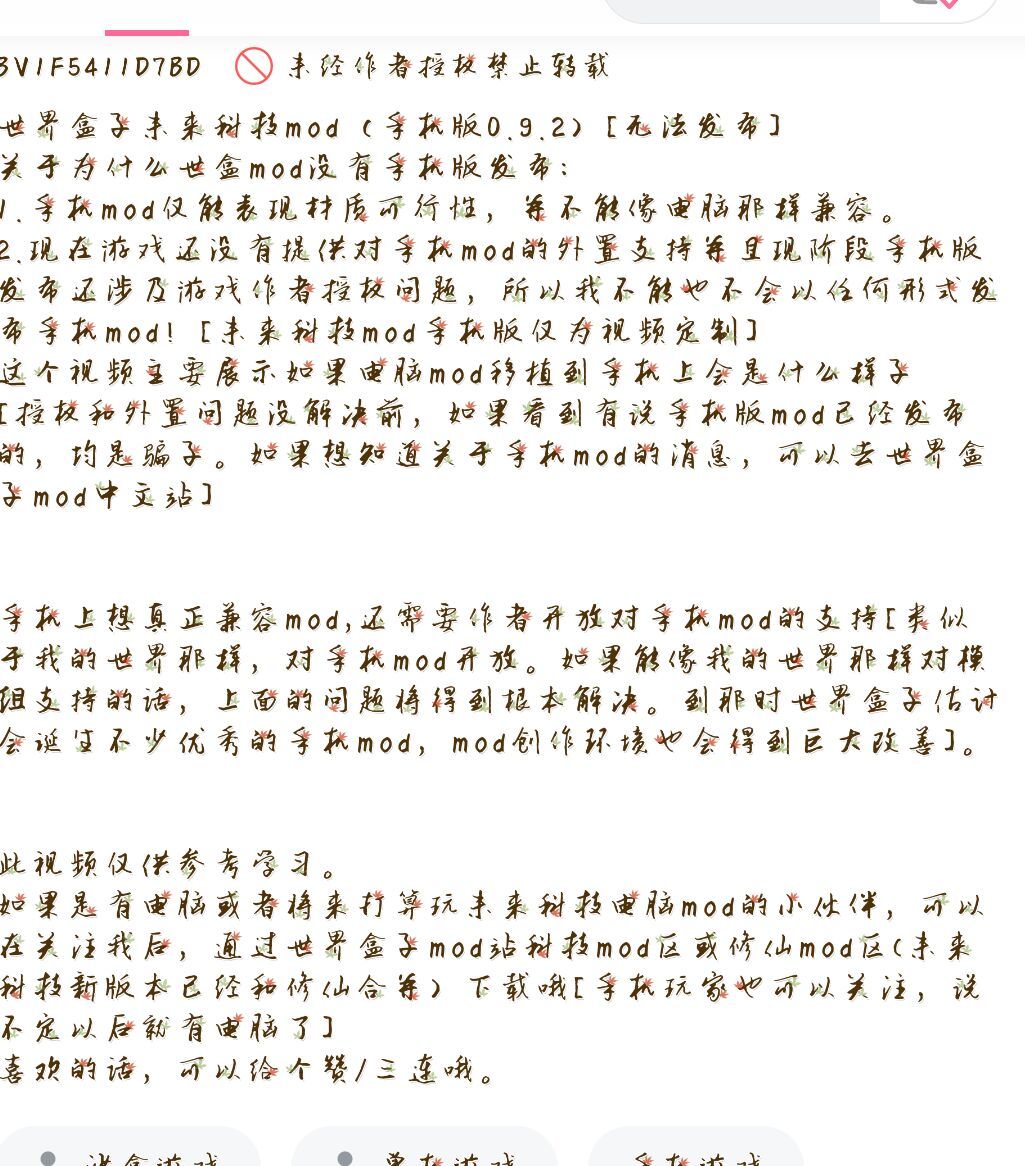 BV1F5411D7BD 未经作者授权禁止转载
世界盒子未来科技mod（手机版0.9.2）[无法发布]
关于为什么世盒mod没有手机版发布：
1.手机mod仅能表现材质可行性，并不能像电脑那样兼容。
2.现在游戏还没有提供对手机mod的外置支持并且现阶段手机版
发布还涉及游戏作者授权问题，所以我不能也不会以任何形式发
布手机mod！[未来科技mod手机版仅为视频定制]
这个视频主要展示如果电脑mod移植到手机上会是什么样子
[授权和外置问题没解决前，如果看到有说手机版mod已经发布
的，均是骗子。如果想知道关于手机mod的消息，可以去世界盒
子mod中文站]
手机上想真正兼容mod,还需要作者开放对手机mod的支持[类似
于我的世界那样，对手机mod开放。如果能像我的世界那样对模
组支持的话，上面的问题将得到根本解决。到那时世界盒子估计
会诞生不少优秀的手机mod，mod创作环境也会得到巨大改善]。
此视频仅供参考学习。
如果是有电脑或者将来打算玩未来科技电脑mod的小伙伴，可以
在关注我后，通过世界盒子mod站科技mod区或修仙mod区(未来
科技新版本已经和修仙合并）下载哦[手机玩家也可以关注，说
不定以后就有电脑了]
喜欢的话，可以给个赞/三连哦。
单机游戏 手机游戏